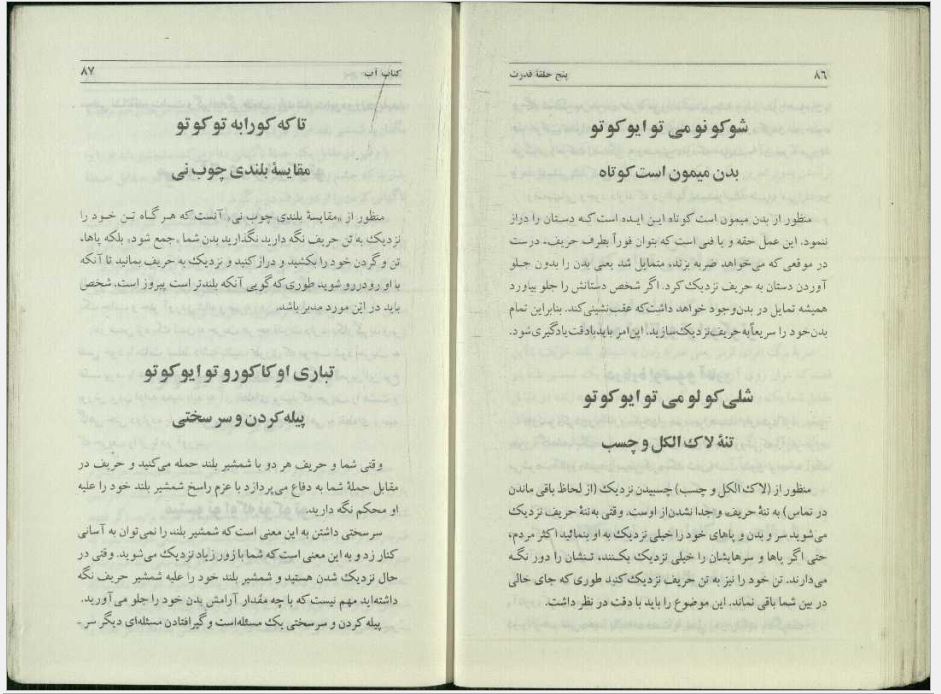 ۸۶
پنج حلقهٔ قدرت
شوکو نو می تو ایو کو تو
بدن میمون است کوتاه
منظور از بدن میمون است کوتاه ایـن ایـده است‌کـه دستـان را دراز
ننمود. این عمل حقه و یا فنی است که بتوان فوراً بطرف حریف، درست
در موقعی که می‌خواهد ضربه بزند، متمایل شد یعنی بدن را بدون جـلو
آوردن دستان به حریف نزدیک کرد. اگر شخص دستانش را جلو بیاورد
همیشه تمایل در بدن‌وجود خواهد داشت‌که عقب‌نشینی‌کند. بنابراین تمام
بدن‌خود را سریعاً به‌حریف‌نزدیک‌سازید. این‌امر باید‌با‌دقت‌یادگیری‌شود.
شلی کو لو می تو ایو کو تو
تنهٔ لاک الکل و چسب
منظور از (لاک الکل و چسب) چسبیدن نزدیک (از لحاظ باقی ماندن
در تماس) به تنهٔ حریف و جدا نشدن‌از اوست. وقتی به‌تنهٔ حریف نزدیک
می‌شوید سر و بدن و پاهای خود را خیلی نزدیک به او بنمائید اکثر مردم،
حتی اگر پاها و سرهایشان را خیلی نزدیک بکـنند، تـنشان را دور نگـه
می‌دارند. تن خود را نیز به تن حریف نزدیک کنید طوری که جای خالی
در بین شما باقی نماند. این موضوع را باید با دقت در نظر داشت.
کتاب آب
۸۷
تاکه کورابه تو کو تو
مقایسهٔ بلندی چوب نی
منظور از «مقایسهٔ بلندی چوب نی» آنست که هـر گـاه تـن خـود را
نزدیک به تن حریف نگه دارید نگذارید بدن شما، جمع شود، بلکه پاها،
تن و گردن خود را بکشید و دراز کنید و نزدیک به حریف بمانید تا آنکه
با او رودررو شوید طوری‌که‌گویی آنکه بلندتر است پیروز است. شخص
باید در این مورد مدبر باشد.
تباری او کاکورو تو ایو کو تو
پیله کردن و سر سختی
وقتی شما و حریف هر دو با شمشیر بلند حمله می‌کنید و حریف در
مقابل حملهٔ شما به دفاع می‌پردازد با عزم راسخ شمشیر بلند خود را علیه
او محکم نگه دارید.
سرسختی داشتن به این معنی است‌که شمشیر بلند را نمی‌توان به آسانی
کنار زد و به این معنی است که شما با زور زیاد نزدیک می‌شوید. وقتی در
حال نزدیک شدن هستید و شمشیر بلند خود را علیه شمشیر حریف نگه
داشته‌اید مهم نیست‌که با چه مقدار آرامش بدن خود را جلو می‌آورید.
پیله کردن و سرسختی یک مسئله‌است و گیرافتادن مسئله‌ای دیگر سر -